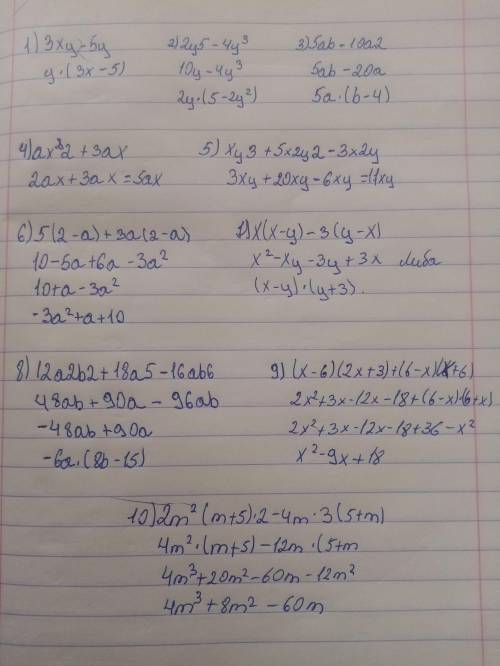 1) 3xy-5y
y·(3x-5)
2) 2y5-4y³
10y-4y³
2y·(5-2y²)
3) 5ab-10a2
5ab-20a
5a·(b-4)
4) ax2+3ax
2ax+3ax=5ax
5) xy3+5x2y2-3x2y
3xy+20xy-6xy=17xy
6) 5(2-a)+3a(2-a)
10-5a+6a-3a²
10+a-3a²
-3a²+a+10
7) x(x-y)-3(y-x)
x²-xy-3y+3x либа
(x-y)·(y+3).
8) 12a2b2+18a5-16ab6
48ab+90a-96ab
-48ab+90a
-6a·(8b-15)
9) (x-6)(2x+3)+(6-x)(x+6)
2x²+3x-12x-18+(6-x)·(6+x)
2x²+3x-12x-18+36-x²
x²-9x+18
10) 2m²(m+5)·2-4m·3(5+m)
4m²·(m+5)-12m·(5+m
4m³+20m²-60m-12m²
4m³+8m²-60m